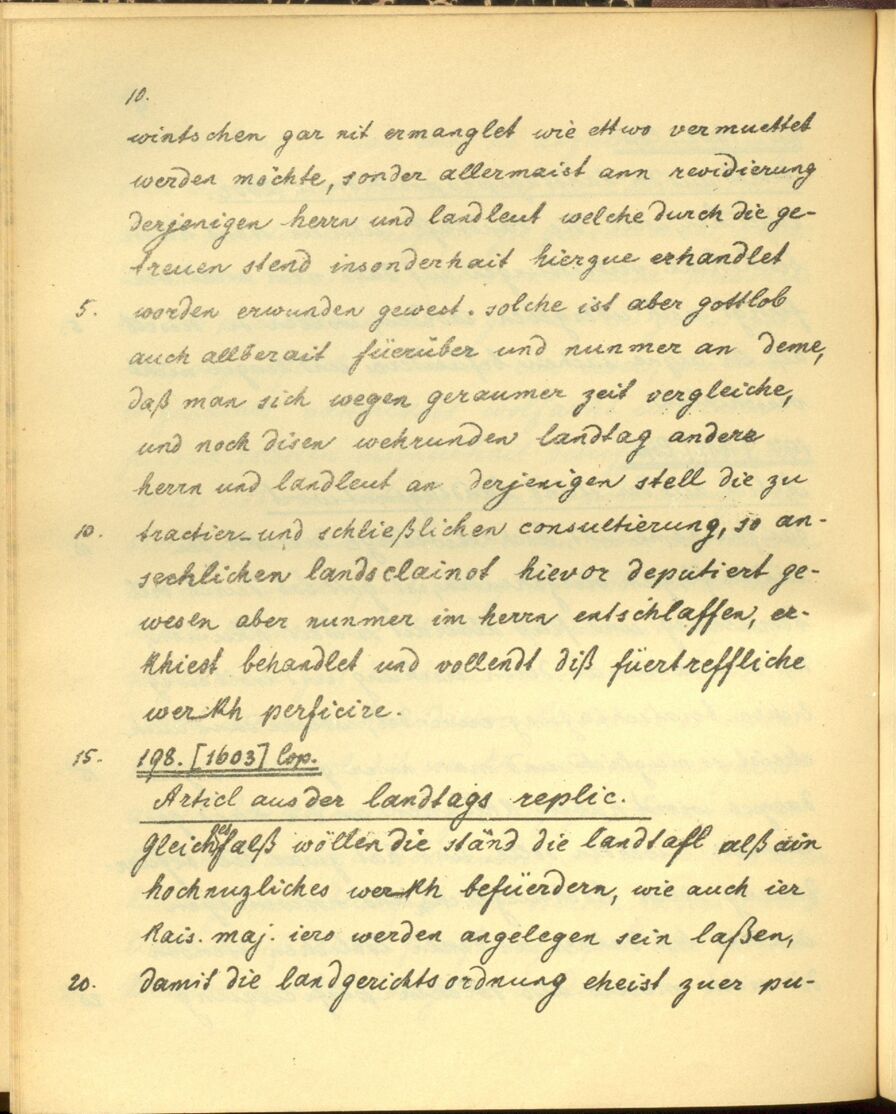 10.
wintschen gar nit ermanglet wie ettwo vermuettet
werden möchte, sonder allermaist ann revidierung
derjenigen herrn und landleut welche durch die ge-
treuen stend insonderhait hierzue erhandlet
5. worden erwunden gewest. solche ist aber gottlob
auch allberait füerüber und nunmer an deme,
daß man sich wegen geraumer zeit vergleiche,
und noch disen wehrunden landtag andere
herrn und landleut an derjenigen stell die zu
10. tractier- und schließlichen consultierung, so an-
sechlichen landsclainot hievor deputiert ge-
wesen aber nunmer im herrn entschlaffen, er-
khiest behandlet und vollendt diß füertreffliche
werkh perficire.
15. 198. [1603] Cop.
Articl aus der landtags replic.
Gleichesfalß wöllen die ständ die landtafl alß ain
hochnuzliches werkh befüerdern, wie auch ier
Kais. maj. iero werden angelegen sein laßen,
20. damit die landgerichtsordnung eheist zuer pu-